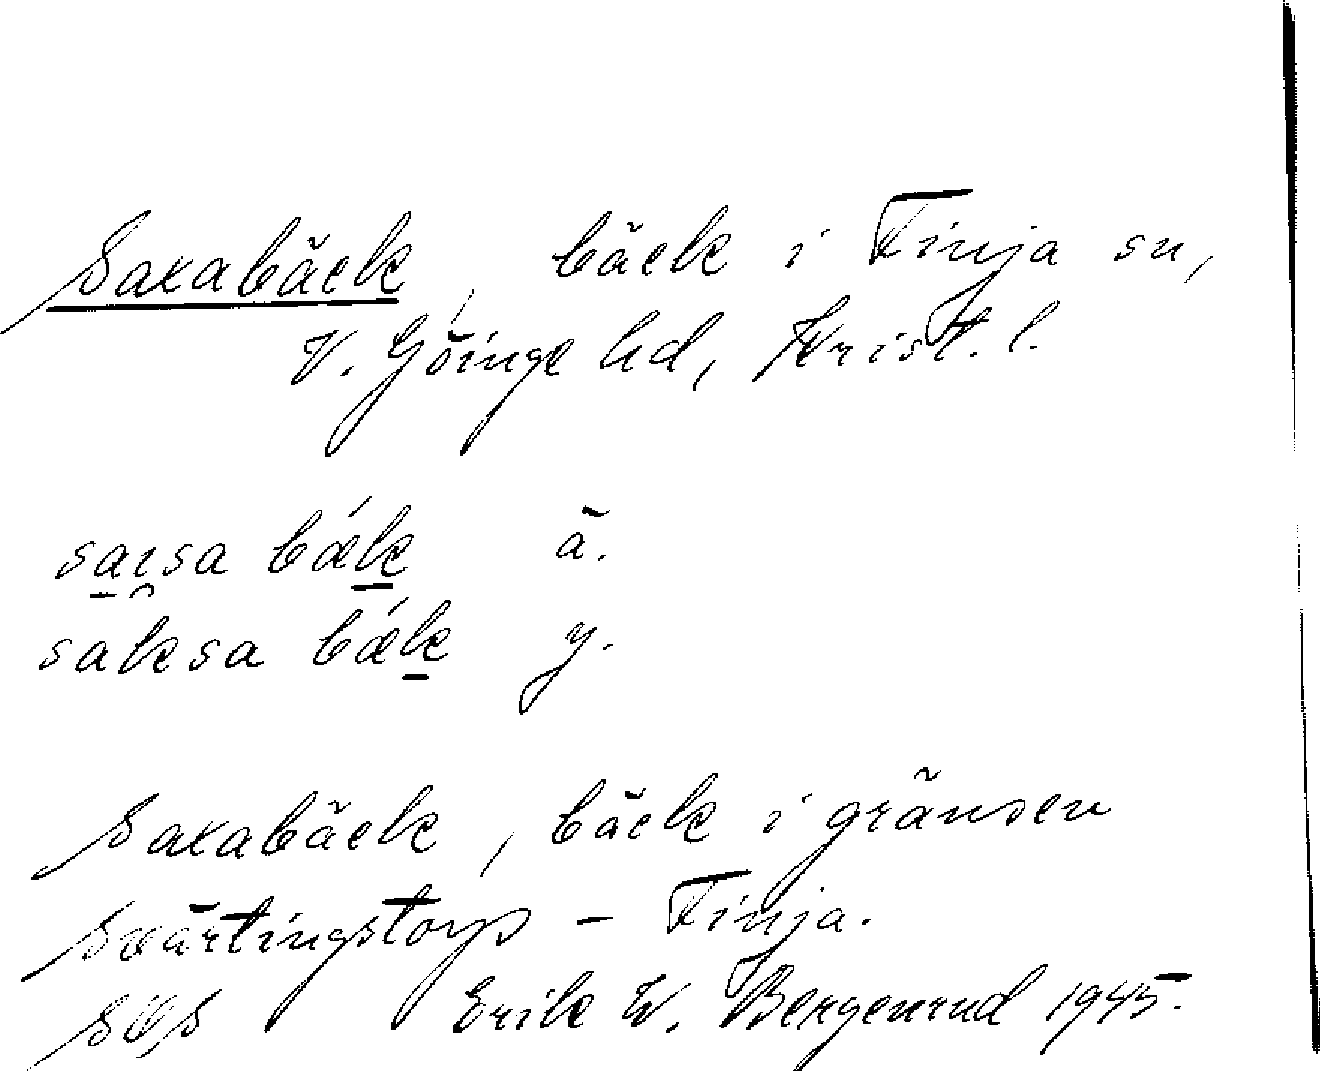 Saxabäck, bäck i Finja sn,
V. Göinge hd, Krist. l.
saısa bǽk ä.
saksa bǽk y.
Saxabäck, bäck i gränsen
Svärtingstorp - Finja.
Erik W. Bergenrud 1945.